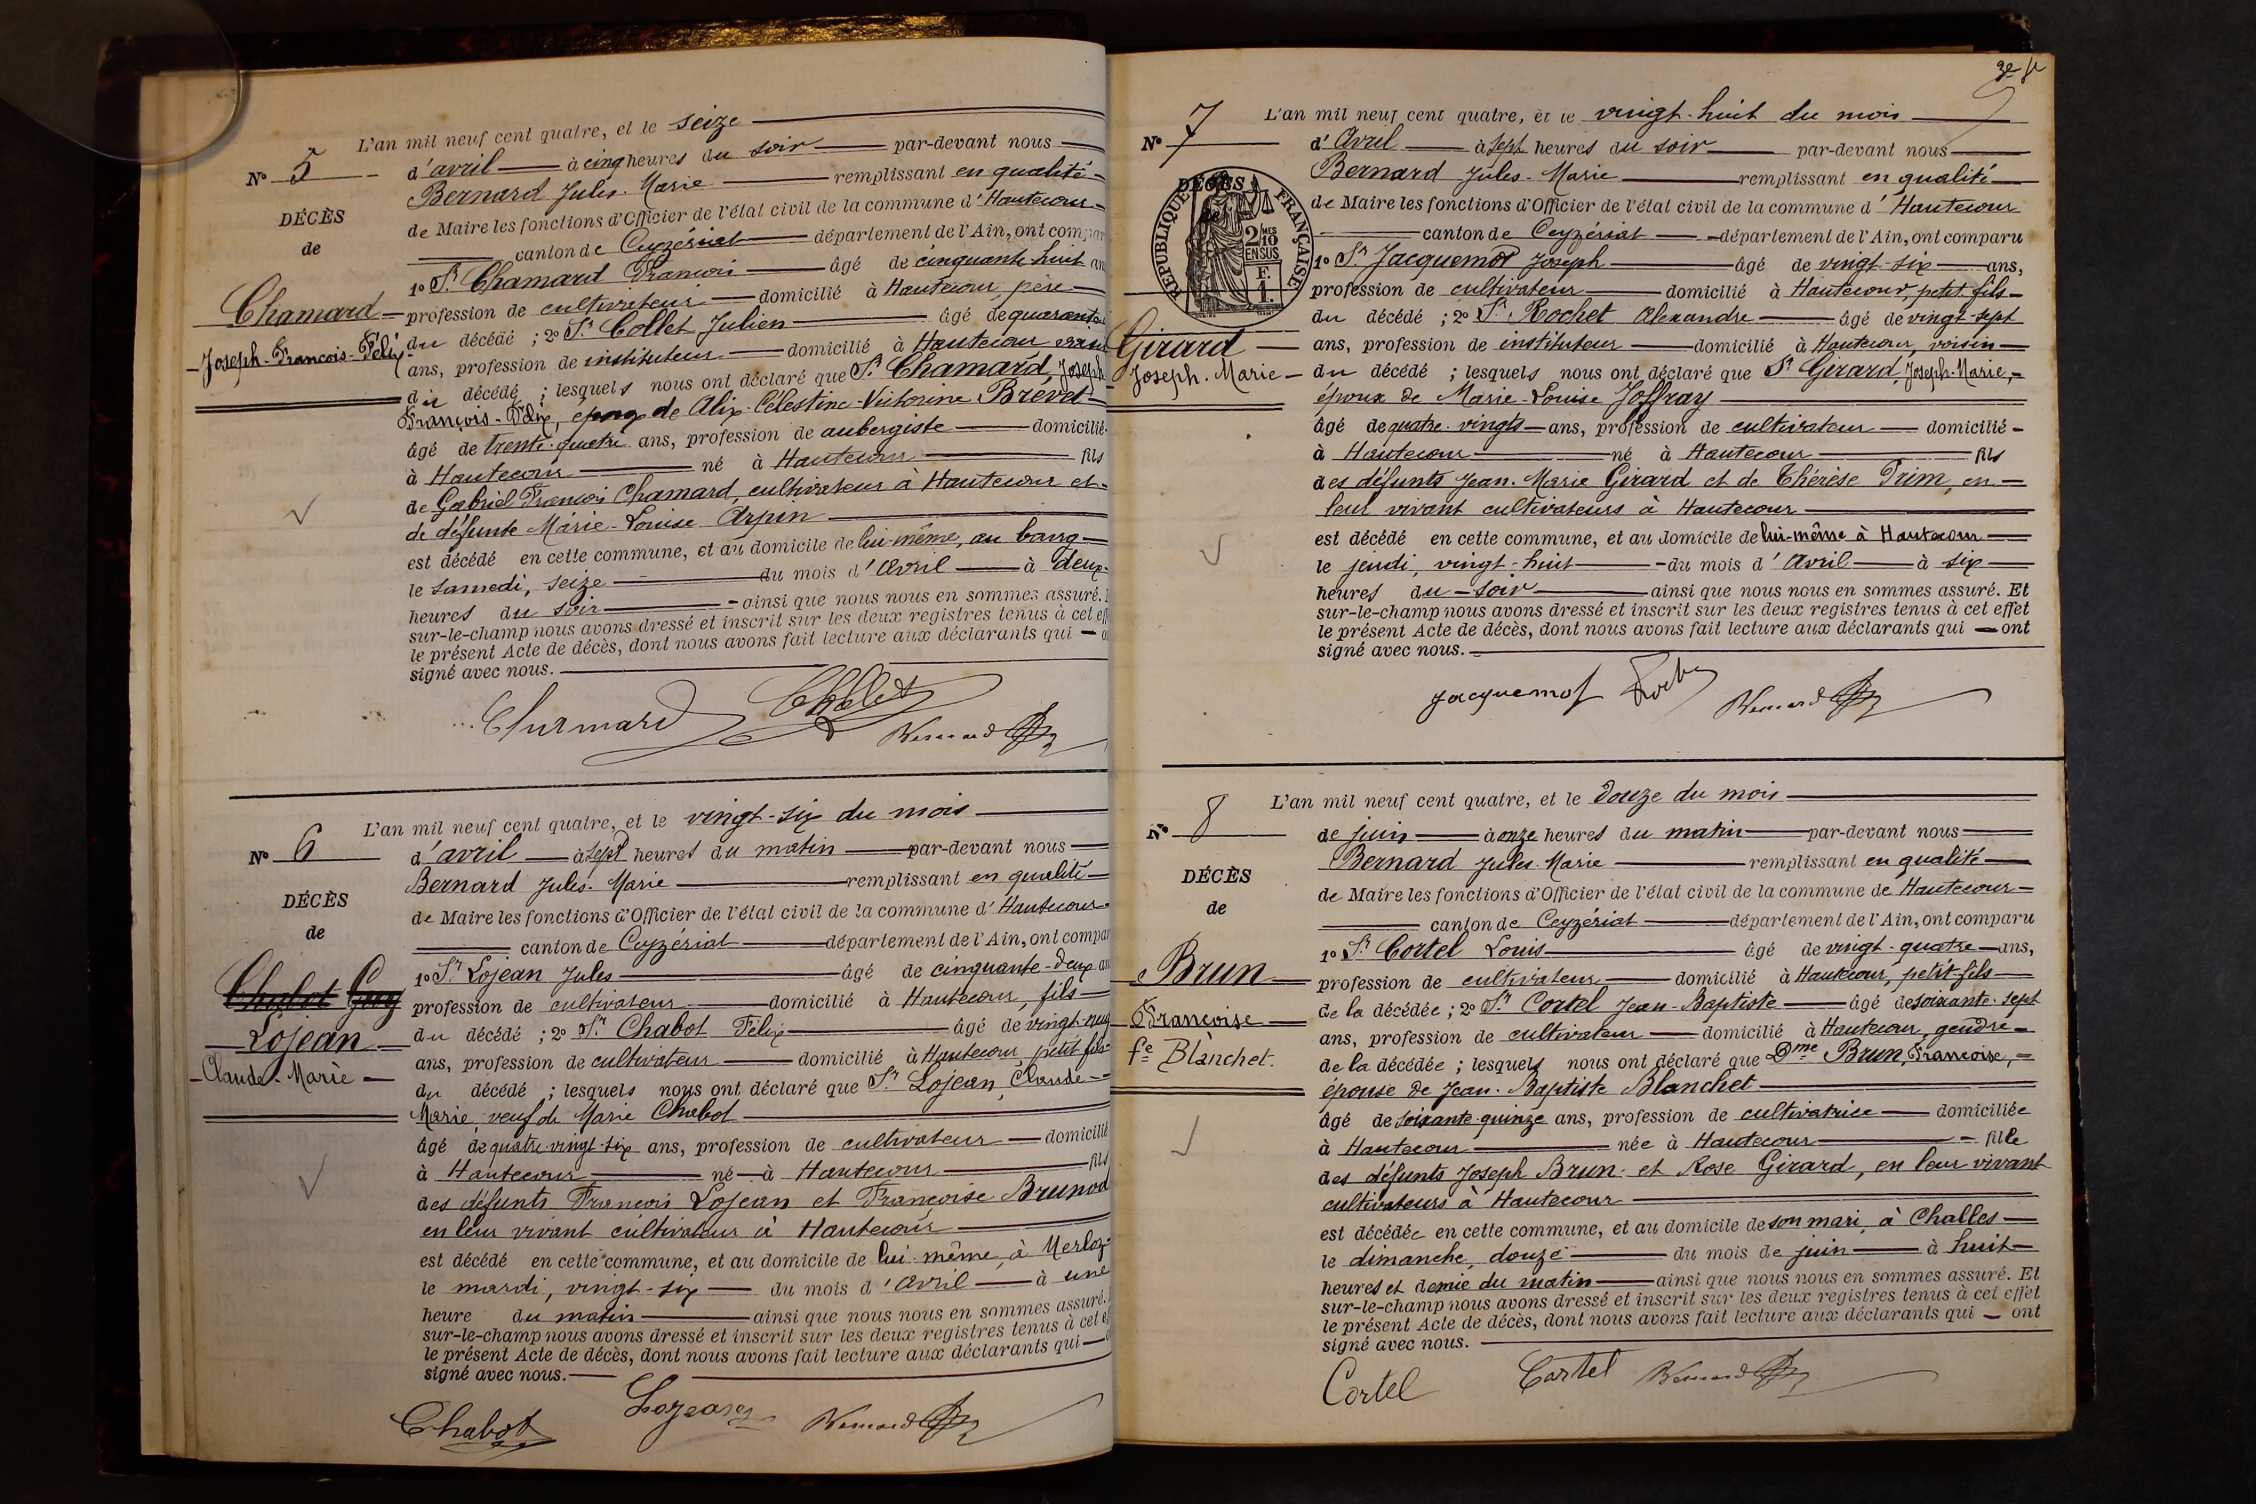 L'an mil neuf cent quatre, et le seize
N° 5
d'avril à cinq heures du soir par-devant nous
Bernard Jules-Marie remplissant en qualité
DÉCÈS
de Maire les fonctions d'Officier de l'état civil de la commune d'Hautecour
de
canton de Ceyzériat département de l'Ain, ont compar
1° Sr. Chamard François âgé de cinquante-huit an
Chamard
profession de cultivateur domicilié à Hautecour, père
Joseph-François-Félix
du décédé ; 2° Sr. Collet Julien âgé de quarante
ans, profession de instituteur domicilié à Hautecour
du décédé ; lesquels nous ont déclaré que Sr. Chamard, Joseph
François-Félix, époux de Alix-Célestine-Victorine Brevet
âgé de trente-quatre ans, profession de aubergiste domicilié
à Hautecour né à Hautecour fils
de Gabriel François Chamard, cultivateur à Hautecour et
de défunte Marie-Louise Arpin
est décédé en cette commune, et au domicile de lui-même, au bourg
le samedi, seize du mois d'avril à deux
heures du soir ainsi que nous nous en sommes assuré.
sur-le-champ nous avons dressé et inscrit sur les deux registres tenus à cet eff
le présent Acte de décès, dont nous avons fait lecture aux déclarants qui
signé avec nous.
Bernard
L'an mil neuf cent quatre, et le vingt-six du mois
N° 6
d'avril à sept heures du matin par-devant nous
Bernard Jules-Marie remplissant en qualité
DÉCÈS
de Maire les fonctions d'Officier de l'état civil de la commune d'Hautecour
de
canton de Ceyzériat département de l'Ain, ont compar
1° Sr Lojean Jules âgé de cinquante-deux an
Chabot
profession de cultivateur domicilié à Hautecour, fils
Lojean
du décédé ; 2° Sr. Chabot Félix âgé de vingt-neuf
Claude-Marie
ans, profession de cultivateur domicilié à Hautecour petit-fils
du décédé ; lesquels nous ont déclaré que Sr Lojean, Claude-
Marie, veuf de Marie Chabot
âgé de quatre-vingt-six ans, profession de cultivateur domicilié
à Hautecour né à Hautecour fils
des défunts François Lojean et Françoise Brunod
en leur vivant cultivateurs à Hautecour
est décédé en cette commune, et au domicile de lui-même, à Merloz
le mardi, vingt-six du mois d'avril à une
heure du matin ainsi que nous nous en sommes assuré.
sur-le-champ nous avons dressé et inscrit sur les deux registres tenus à cet ef
le présent Acte de décès, dont nous avons fait lecture aux déclarants qui
signé avec nous.
Chabot Lojean Bernard
L'an mil neuf cent quatre, et le vingt-huit du mois
N° 7
d'avril à sept heures du soir par-devant nous
Bernard Jules-Marie remplissant en qualité
DÉCÈS
de
RÉPUBLIQUE FRANÇAISE
2/10 MES
EN SUS
F.
1.
de Maire les fonctions d'Officier de l'état civil de la commune d'Hautecour
canton de Ceyzériat département de l'Ain, ont comparu
1° Sr Jacquemot Joseph âgé de vingt-six ans,
profession de cultivateur domicilié à Hautecour, petit-fils
du décédé ; 2° Sr Rochet Alexandre âgé de vingt-sept
Girard
ans, profession de instituteur domicilié à Hautecour, voisin
Joseph-Marie
du décédé ; lesquels nous ont déclaré que Sr Girard, Joseph-Marie,
époux de Marie-Louise Joffray
âgé de quatre-vingts ans, profession de cultivateur domicilié
à Hautecour né à Hautecour fils
des défunts Jean-Marie Girard et de Thérèse Prim, en
leur vivant cultivateurs à Hautecour
est décédé en cette commune, et au domicile de lui-même à Hautecour
le jeudi, vingt-huit du mois d'avril à six
heures du soir ainsi que nous nous en sommes assuré. Et
sur-le-champ nous avons dressé et inscrit sur les deux registres tenus à cet effet
le présent Acte de décès, dont nous avons fait lecture aux déclarants qui ont
signé avec nous.
Jacquemot Bernard
L'an mil neuf cent quatre, et le douze du mois
N° 8
de juin à onze heures du matin par-devant nous
Bernard Jules-Marie remplissant en qualité
DÉCÈS
de Maire les fonctions d'Officier de l'état civil de la commune de Hautecour
de
canton de Ceyzériat département de l'Ain, ont comparu
1° Sr Cortel Louis âgé de vingt-quatre ans,
Brun
profession de cultivateur domicilié à Hautecour, petit-fils
de la décédée ; 2° Sr Cortel Jean-Baptiste âgé de soixante-sept
Françoise
ans, profession de cultivateur domicilié à Hautecour, gendre
fe Blanchet.
de la décédée ; lesquels nous ont déclaré que Dme Brun, Françoise,
épouse de Jean-Baptiste Blanchet
âgé de soixante-quinze ans, profession de cultivatrice domiciliée
à Hautecour née à Hautecour fille
des défunts Joseph Brun et Rose Girard, en leur vivant
cultivateurs à Hautecour
est décédée en cette commune, et au domicile de son mari, à Challes
le dimanche, douze du mois de juin à huit
heures et demie du matin ainsi que nous nous en sommes assuré. Et
sur-le-champ nous avons dressé et inscrit sur les deux registres tenus à cet effet
le présent Acte de décès, dont nous avons fait lecture aux déclarants qui ont
signé avec nous.
Cortel Cortel Bernard